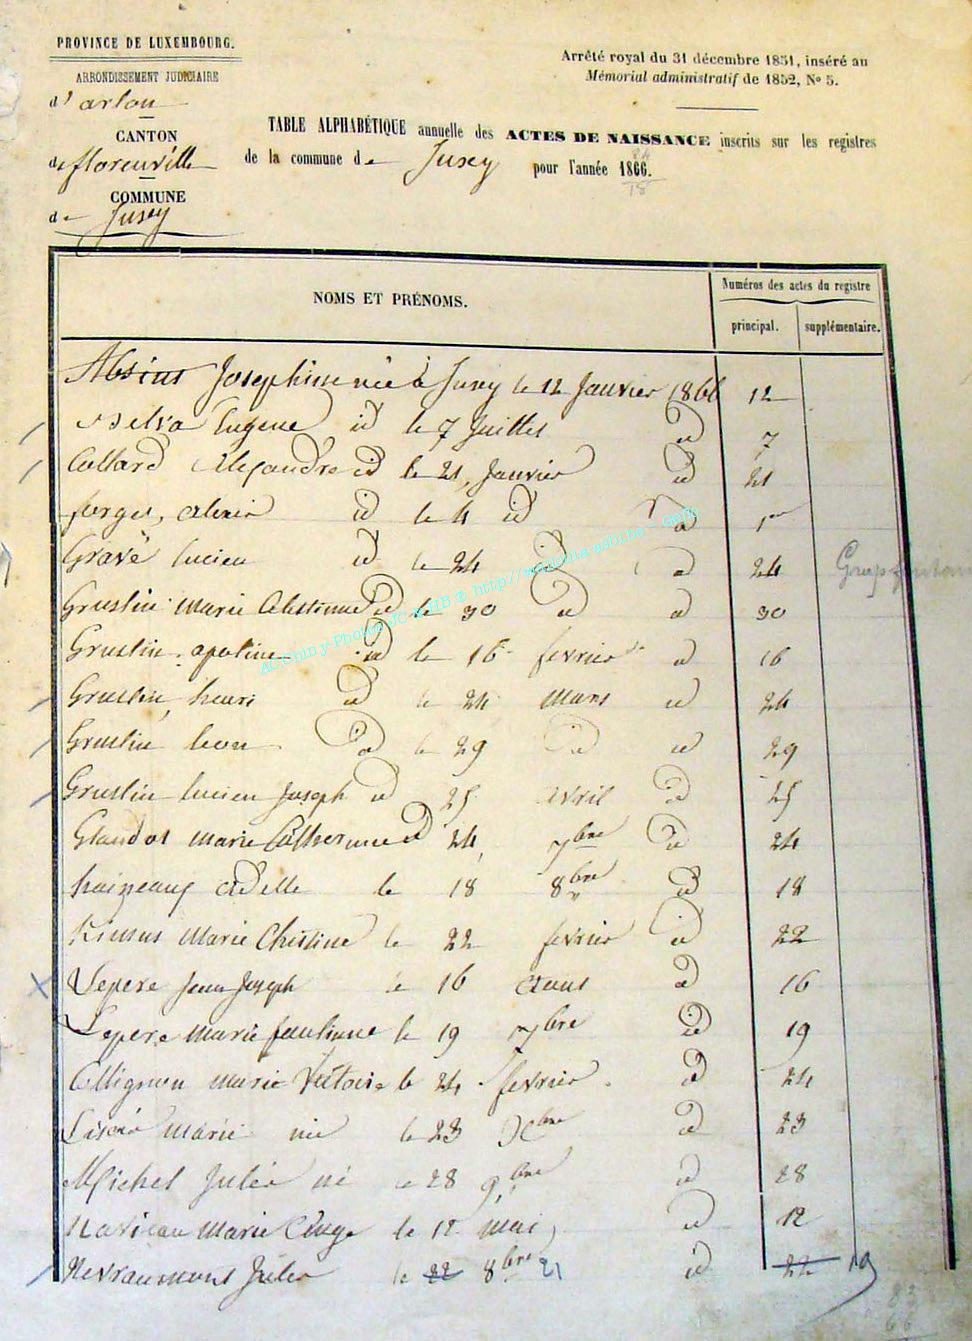 PROVINCE DE LUXEMBOURG.
ARRONDISSEMENT JUDICIAIRE
d'arlon
CANTON
de florenville
COMMUNE
de Jusey
Arrêté royal du 31 décembre 1851, inséré au
Mémorial administratif de 1852, No 5.
TABLE ALPHABÉTIQUE annuelle des ACTES DE NAISSANCE inscrits sur les registres
de la commune de Jusey pour l'année 1866.
NOMS ET PRÉNOMS.
Numéros des actes du registre
principal. supplémentaire.
Josephine née à Jusey le 12 Janvier 1866 12
Eugene id le 7 Juillet id 7
Collard Alexandre id le 21 Janvier id 21
forget id le 4 id id 1er
Gravé lucien id le 24 id id 24
Gruslin Marie Celestine id le 30 id id 30
Gruslin apoline id le 16 fevrier id 16
Gruslin henri id le 24 Mars id 24
Gruslin leon id le 29 id id 29
Gruslin lucien Joseph id 25 avril id 25
Glaudot Marie Catherine id 24 7bre id 24
adelle le 18 8bre id 18
Marie Christine le 22 fevrier id 22
Lepere Jean Joseph le 16 aout id 16
Lepere Marie pauline le 19 7bre id 19
Marie Victoire le 24 fevrier id 24
marie née le 23 Xbre id 23
Michel Jules né le 28 9bre id 28
Marie le 12 mai id 12
Nevraumont Jules le 22 8bre 21 id 22 19
AC Chiny-Photos JC & HB © http://